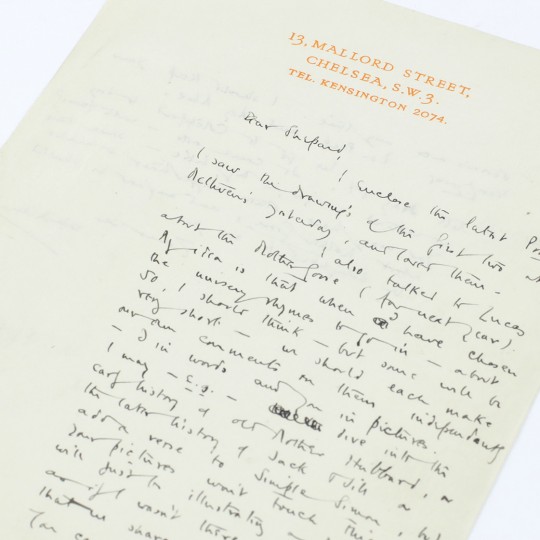 13, MALLORD STREET,
CHELSEA, S.W.3.
TEL. KENSINGTON 2074.
Dear Shepard,
I enclose the latest
I saw the drawings of the first two at
Methuen's yesterday, and loved them –
I also talked to Lucas
about the Mother Goose (for next year).
My idea is that when I have chosen
the nursery rhymes to go in – about
50, I should think – but some will be
very short – we should each make
our own comments on them independently
– I in words and you in pictures.
I may – e.g. – dive into the
early history of old Mother Hubbard, or
the later history of Jack & Jill or
add a verse to Simple Simon, but
your pictures won't touch this
will just be illustrating
as if I wasn't there
that we share
You